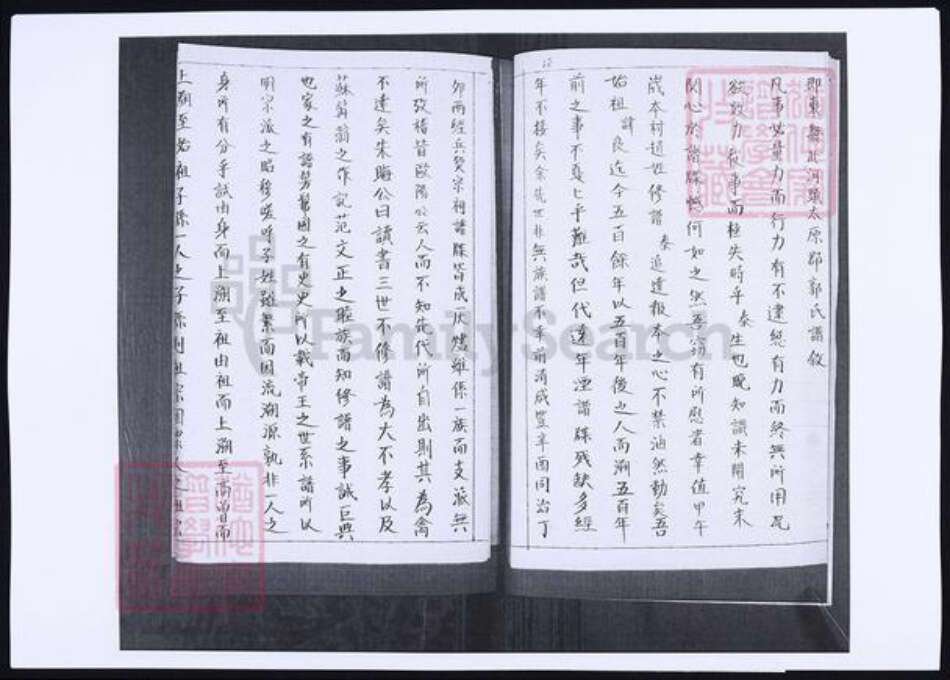 即東無北河頭太原郡郭氏譜敘
凡事必量力而行力有不逮縱有力而終無所用是
欲效力 事而極失時乎 泰生也晚知識未開究未
關心於譜牒 何如之 吾竊有所慰者幸值甲午
歲本村趙姓修譜 泰追遠報本之心不禁油然動矣吾
始祖 諱良迄今五百餘年以五百年後之人而溯五百年
前之事不戛乎難哉但代遠年湮譜牒殘缺多經
年不接矣余先世非無族譜不幸前清咸豐辛酉同治丁
卯兩經兵燹宗祠譜牒皆成灰燼雖係一族而支派無
所攷稽昔歐陽公云人而不知先代所自出則其為禽
不遠矣朱晦公曰讀書三世不修譜為大不孝以及
蘇 翁之作記范文正之 族而知修譜之事誠巨典
也家之有譜 國之有史史所以載帝王之世系譜所以
明宗派之昭穆嗟呼子姓雖繁而因流溯源孰非一人之
身所有分乎試由身而上溯至祖由祖而上溯至高曾而
上溯至始祖子孫一人之子孫則祖宗
FamilySearch